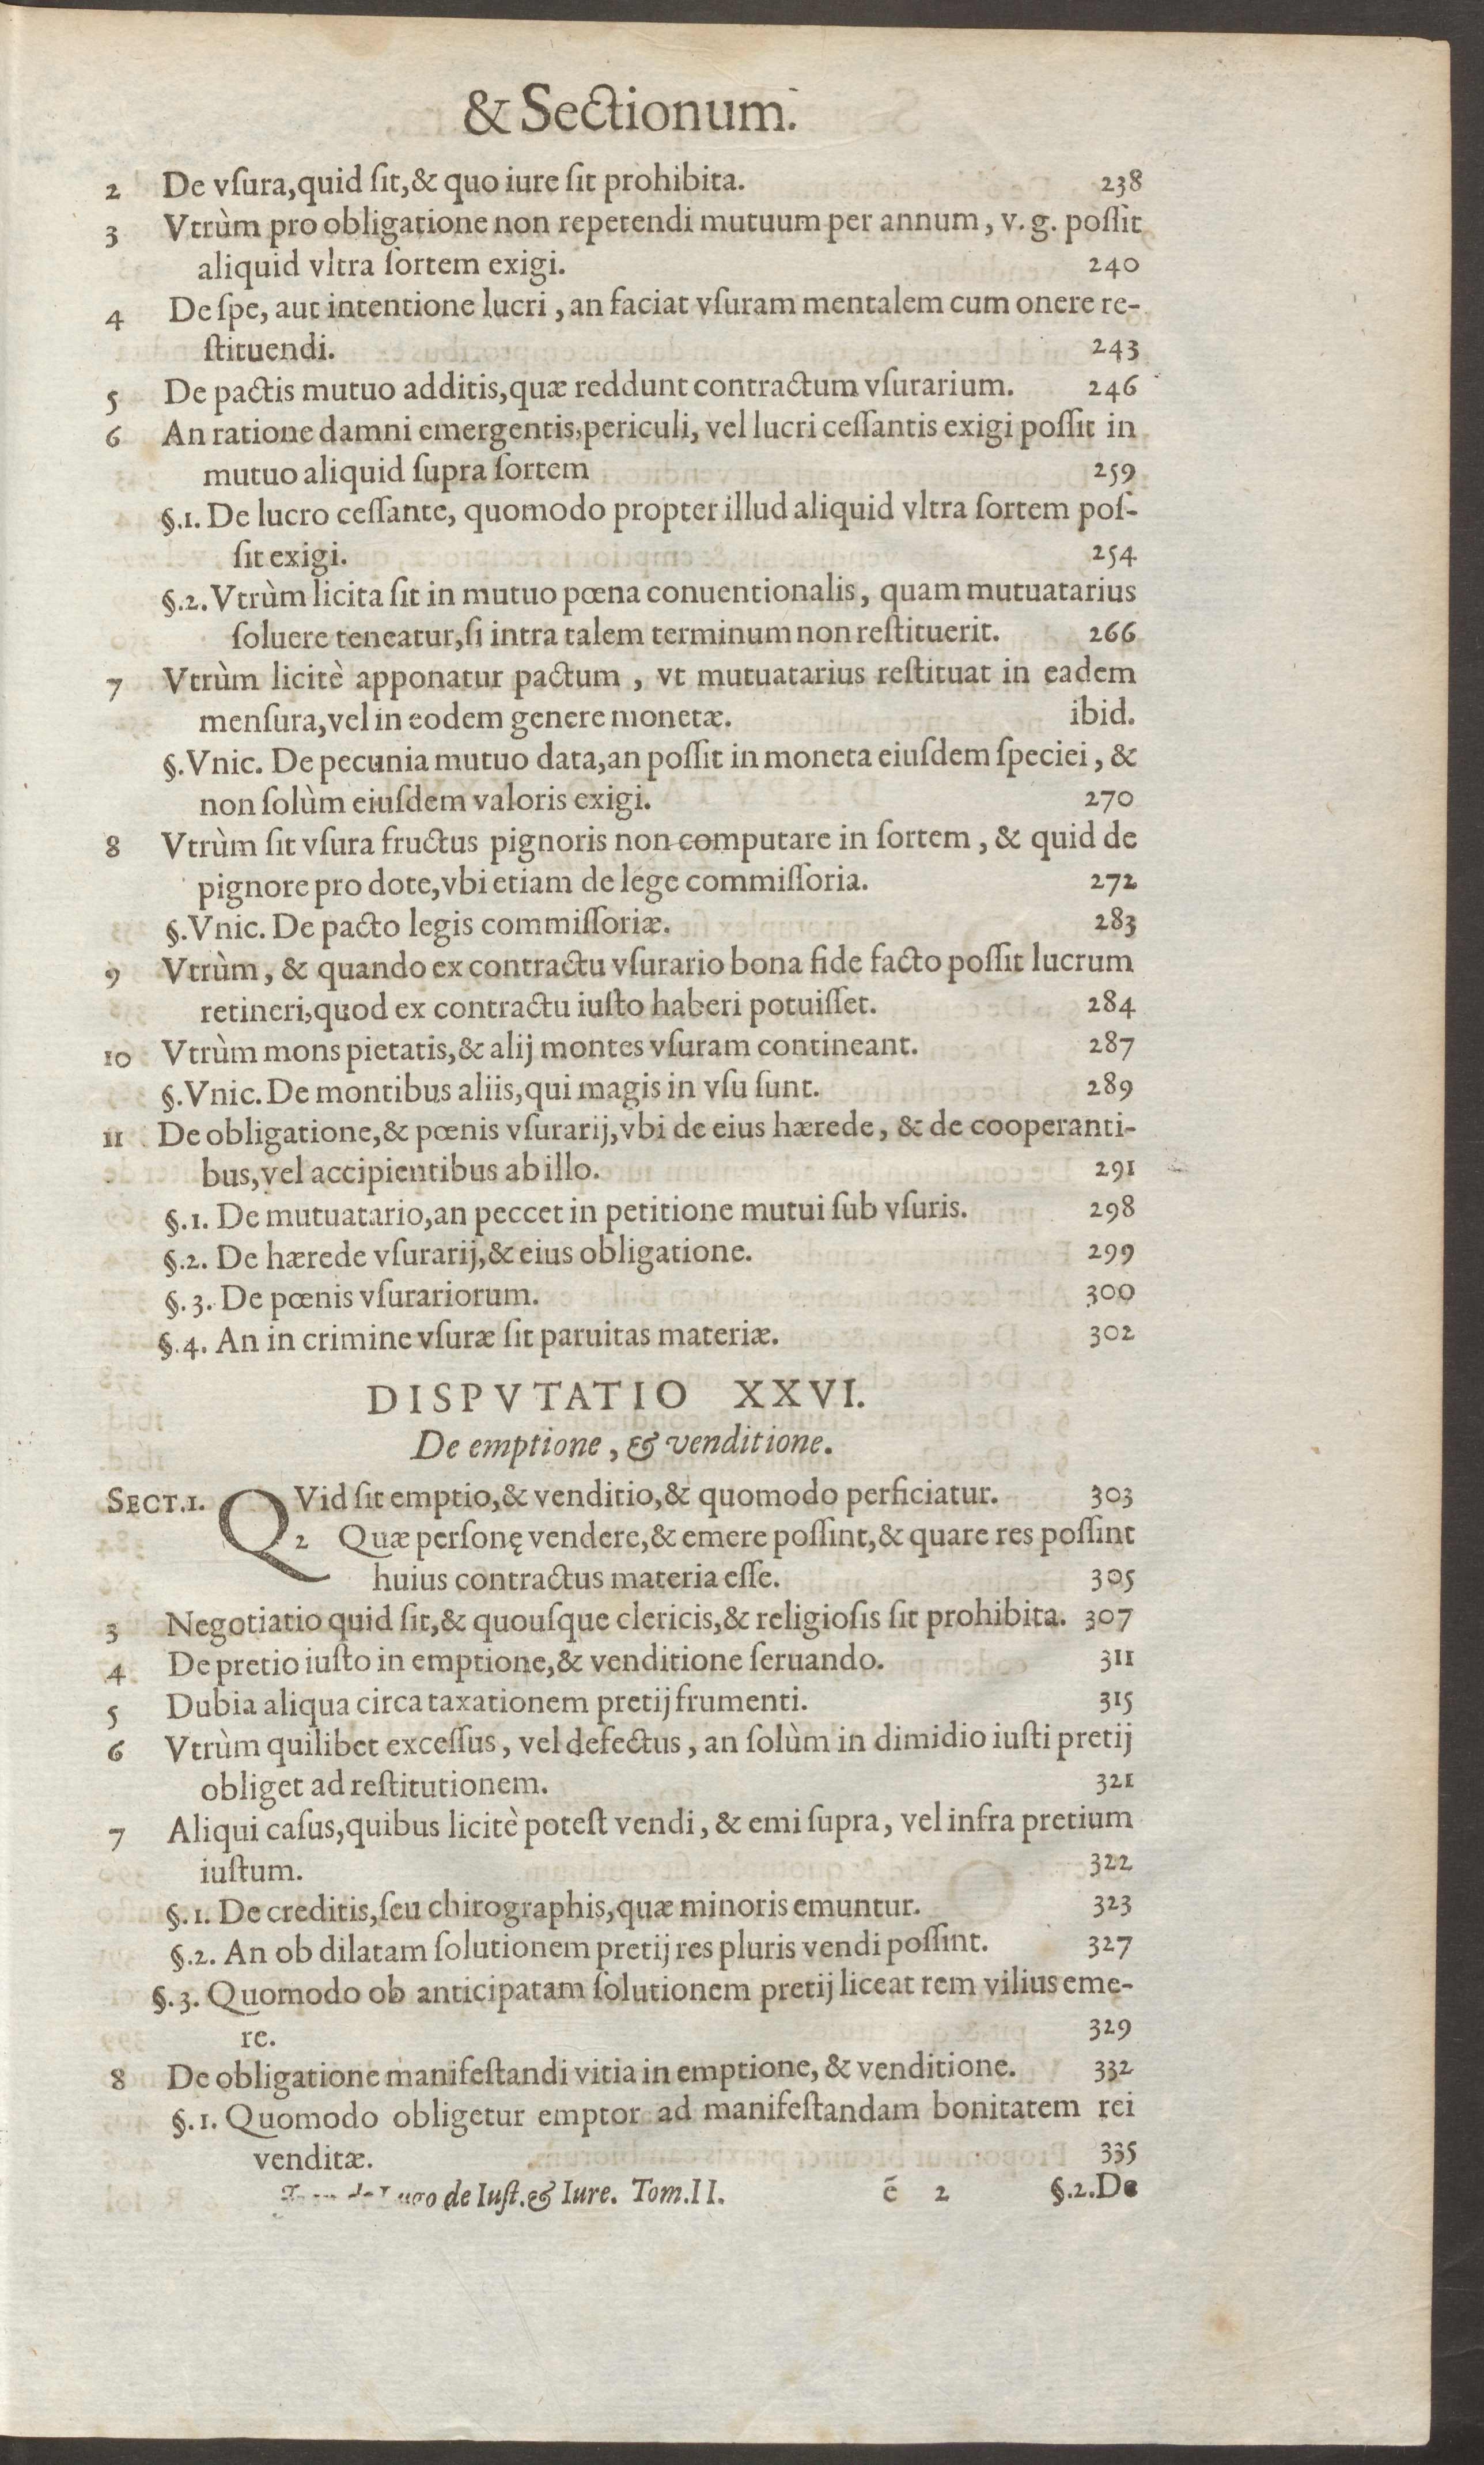 & Sectionum.
2 De vſura, quid ſit, & quo iure ſit prohibita. 238
3 Vtrùm pro obligatione non repetendi mutuum per annum, v. g. poſſit
aliquid vltra ſortem exigi. 240
4 De ſpe, aut intentione lucri, an faciat vſuram mentalem cum onere re-
ſtituendi. 243
5 De pactis mutuo additis, quæ reddunt contractum vſurarium. 246
6 An ratione damni emergentis, periculi, vel lucri ceſſantis exigi poſſit in
mutuo aliquid ſupra ſortem 259
§.1. De lucro ceſſante, quomodo propter illud aliquid vltra ſortem poſ-
ſit exigi. 254
§.2. Vtrùm licita ſit in mutuo pœna conuentionalis, quam mutuatarius
ſoluere teneatur, ſi intra talem terminum non reſtituerit. 266
7 Vtrùm licitè apponatur pactum, vt mutuatarius reſtituat in eadem
menſura, vel in eodem genere monetæ. ibid.
§.Vnic. De pecunia mutuo data, an poſſit in moneta eiuſdem ſpeciei, &
non ſolùm eiuſdem valoris exigi. 270
8 Vtrùm ſit vſura fructus pignoris non computare in ſortem, & quid de
pignore pro dote, vbi etiam de lege commiſſoria. 272
§.Vnic. De pacto legis commiſſoriæ. 283
9 Vtrùm, & quando ex contractu vſurario bona fide facto poſſit lucrum
retineri, quod ex contractu iuſto haberi potuiſſet. 284
10 Vtrùm mons pietatis, & alij montes vſuram contineant. 287
§.Vnic. De montibus aliis, qui magis in vſu ſunt. 289
11 De obligatione, & pœnis vſurarij, vbi de eius hærede, & de cooperanti-
bus, vel accipientibus ab illo. 291
§.1. De mutuatario, an peccet in petitione mutui ſub vſuris. 298
§.2. De hærede vſurarij, & eius obligatione. 299
§.3. De pœnis vſurariorum. 300
§.4. An in crimine vſuræ ſit paruitas materiæ. 302
DISPVTATIO XXVI.
De emptione, & venditione.
SECT.1. QVid ſit emptio, & venditio, & quomodo perficiatur. 303
2 Quæ perſonę vendere, & emere poſſint, & quare res poſſint
huius contractus materia eſſe. 305
3 Negotiatio quid ſit, & quouſque clericis, & religioſis ſit prohibita. 307
4 De pretio iuſto in emptione, & venditione ſeruando. 311
5 Dubia aliqua circa taxationem pretij frumenti. 315
6 Vtrùm quilibet exceſſus, vel defectus, an ſolùm in dimidio iuſti pretij
obliget ad reſtitutionem. 321
7 Aliqui caſus, quibus licitè poteſt vendi, & emi ſupra, vel infra pretium
iuſtum. 322
§.1. De creditis, ſeu chirographis, quæ minoris emuntur. 323
§.2. An ob dilatam ſolutionem pretij res pluris vendi poſſint. 327
§.3. Quomodo ob anticipatam ſolutionem pretij liceat rem vilius eme-
re. 329
8 De obligatione manifeſtandi vitia in emptione, & venditione. 332
§.1. Quomodo obligetur emptor ad manifeſtandam bonitatem rei
venditæ. 335
de Iuſt. & Iure. Tom.II. ẽ 2 §.2. De